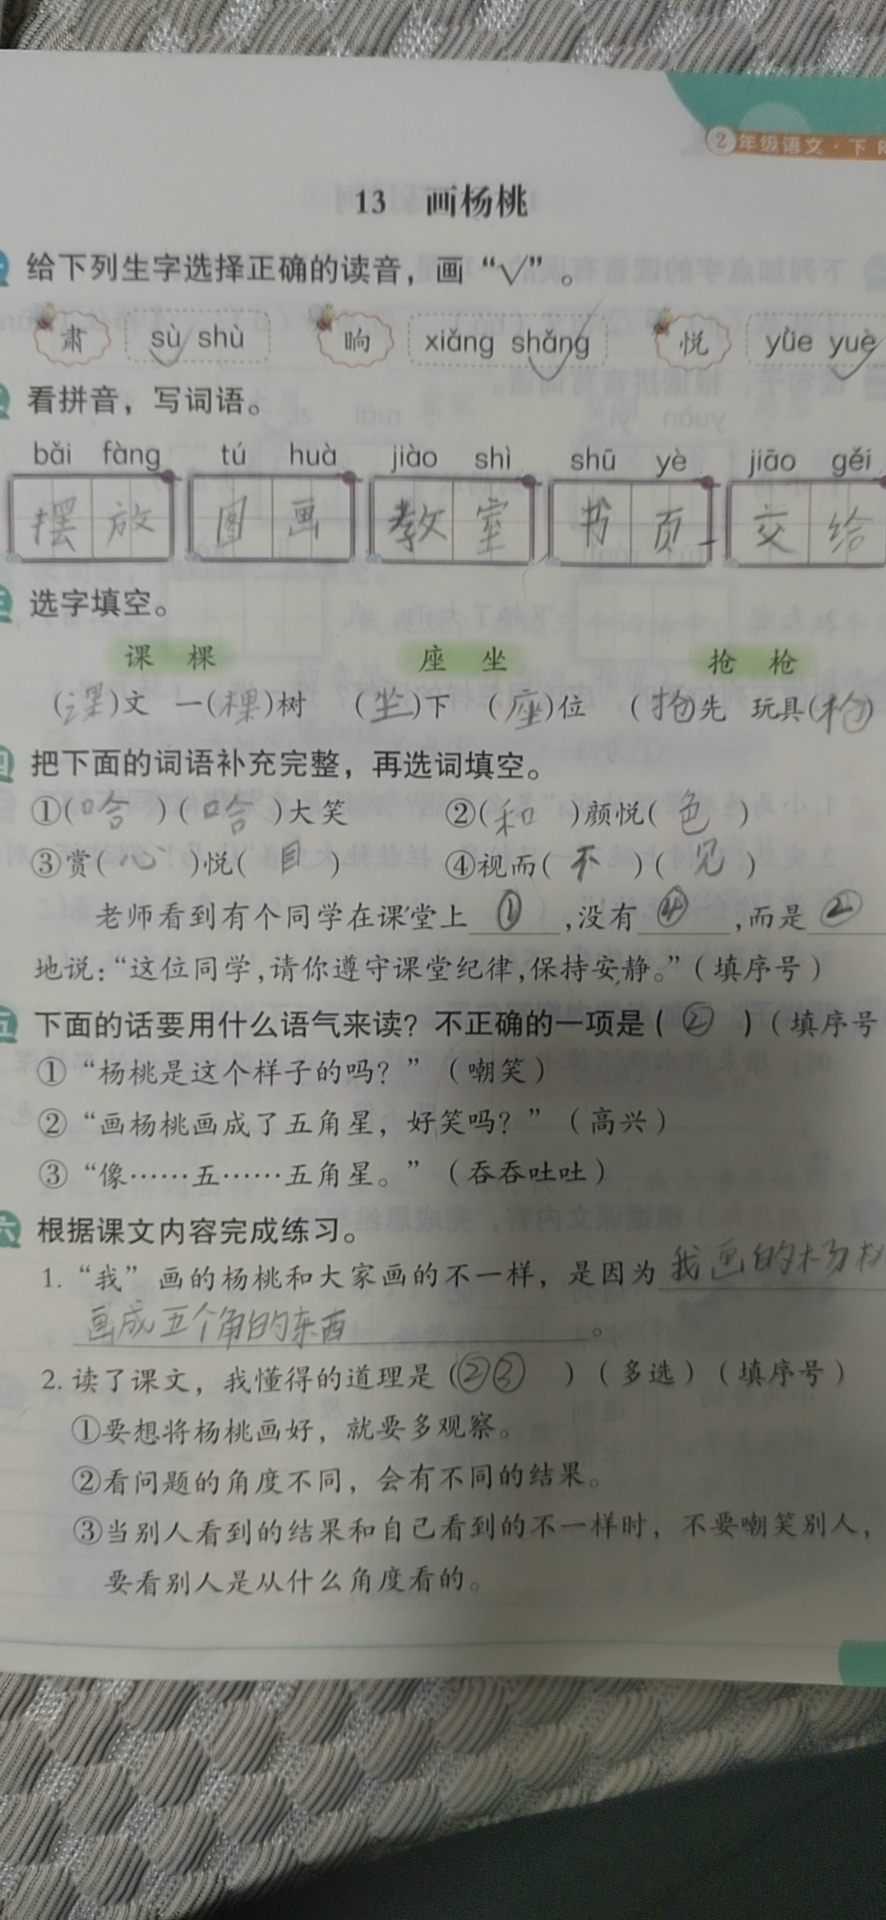 2 年级语文·下
13 画杨桃
给下列生字选择正确的读音，画“√”。
肃 sù shù 晌 xiǎng shǎng 悦 yùe yuè
看拼音，写词语。
bǎi fàng tú huà jiào shì shū yè jiāo gěi
摆放 图画 教室 书页 交给
三 选字填空。
课 棵 座 坐 抢 枪
(课)文 一(棵)树 (坐)下 (座)位 (抢)先 玩具(枪)
四 把下面的词语补充完整，再选词填空。
①(哈)(哈)大笑 ②(和)颜悦(色)
③赏(心)悦(目) ④视而(不)(见)
老师看到有个同学在课堂上①,没有④,而是②
地说:“这位同学,请你遵守课堂纪律,保持安静。”(填序号)
五 下面的话要用什么语气来读？不正确的一项是(②)(填序号
①“杨桃是这个样子的吗？”(嘲笑)
②“画杨桃画成了五角星，好笑吗？”(高兴)
③“像……五……五角星。”(吞吞吐吐)
六 根据课文内容完成练习。
1.“我”画的杨桃和大家画的不一样，是因为我画的杨桃
画成五个角的东西。
2. 读了课文，我懂得的道理是(②③)(多选)(填序号)
①要想将杨桃画好，就要多观察。
②看问题的角度不同，会有不同的结果。
③当别人看到的结果和自己看到的不一样时，不要嘲笑别人，
要看别人是从什么角度看的。